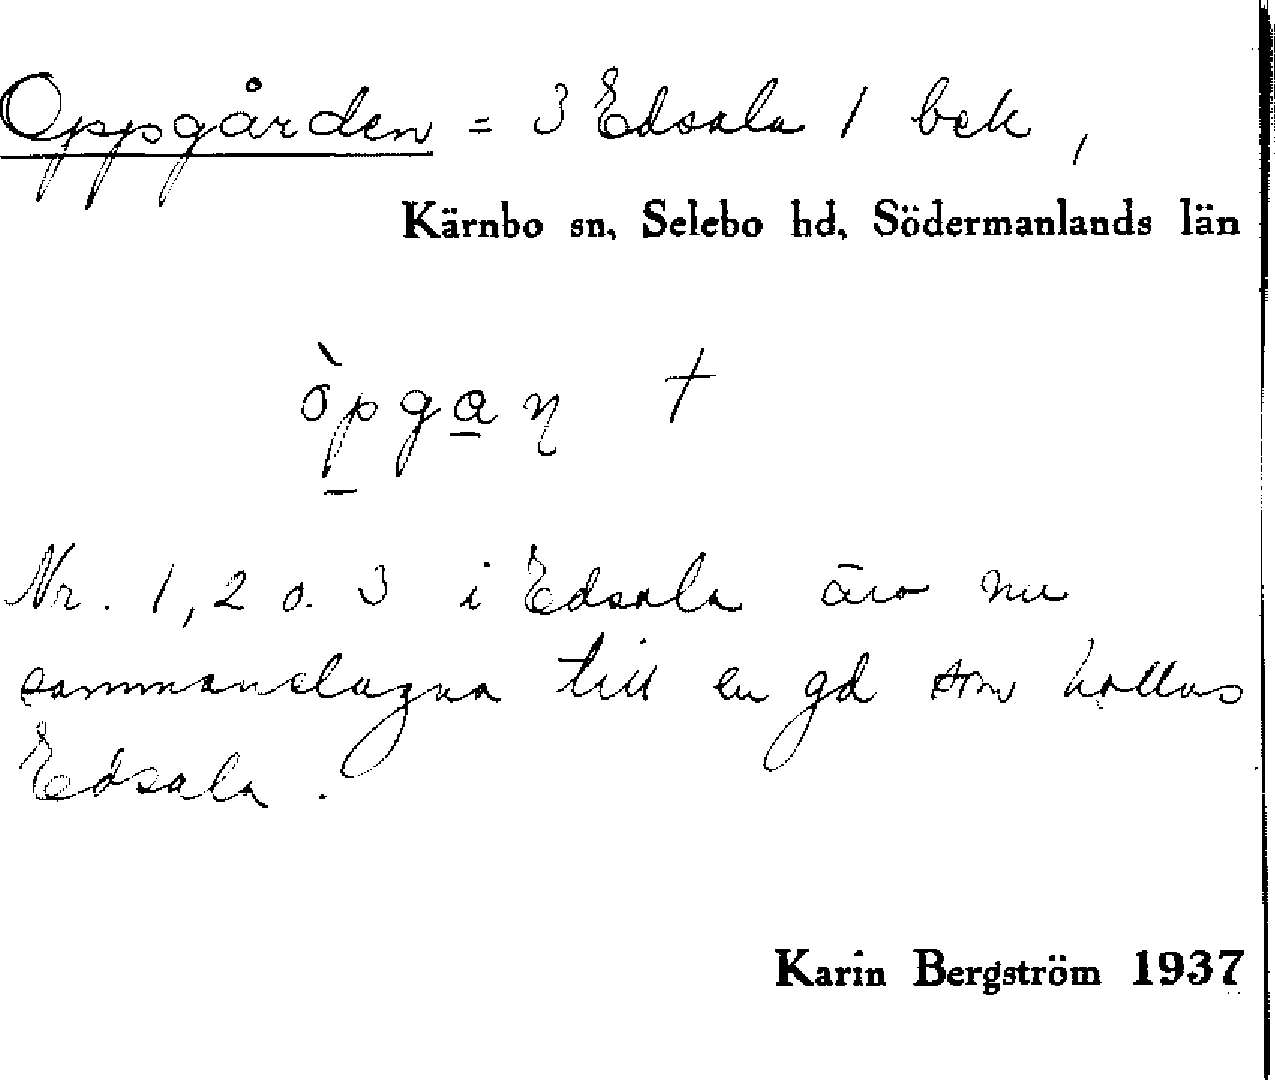 Oppgården = 3 Edsala 1 bek,
Kärnbo sn, Selebo hd, Södermanlands län
òpgaη †
Nr. 1, 2 o. 3 i Edsala äro nu
sammanslagna till en gd som kallas
Edsala.
Karin Bergström 1937